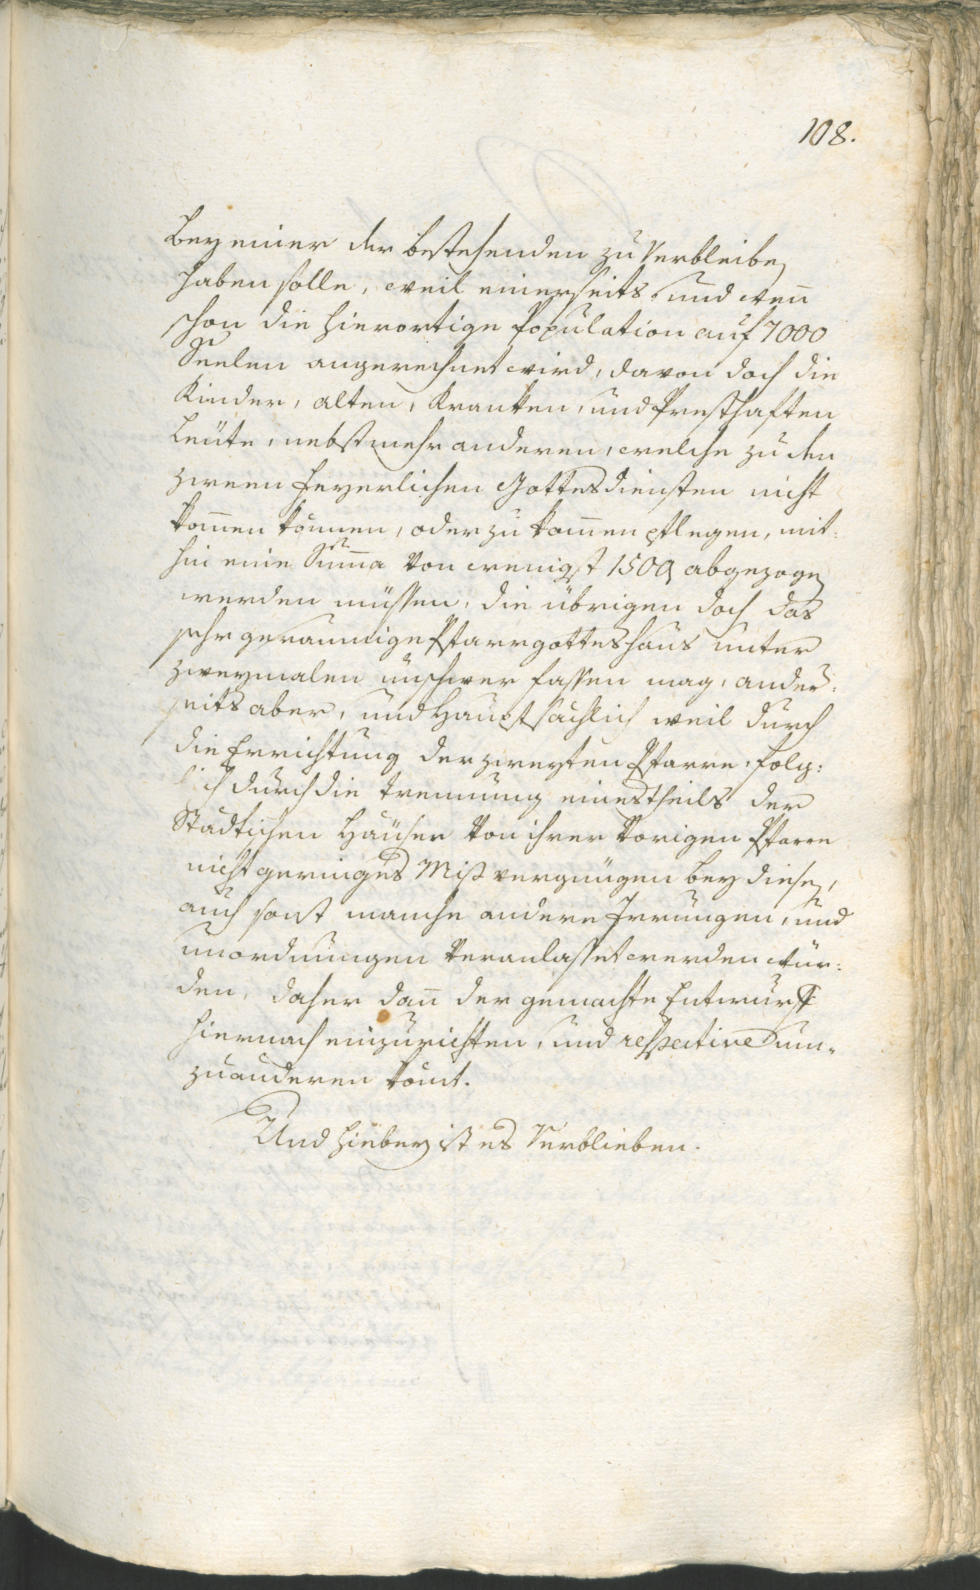 108.
Bey einer der bestehenden zu Verbleibe
haben solle, weil einerseits, und wen̄
schon die hierortige Population auf 7000
Seelen angerechnet wird, davon doch die
Kinder, alten, Kranken, und Presthaften
Leüte, nebst mehr anderen, welche zu den
zween Feyerlichen Gottesdiensten nicht
kom̄en können, oder zu kom̄en pflegen, mit:
hin eine Sum̄a von wenigst 1500 abgezoge
werden müssen, die übrigen doch das
sehr geraumige Pfarrgotteshaus unter
zweymalen unschwer fassen mag, ander:
seits aber, und Hauptsächlich weil durch
die Errichtung der zweyten Pfarre, folg:
lich durch die trennung einestheils der
Städtischen Häuser von ihrer vorigen Pfarre
nicht geringes Misvergnügen bey diese,
auch sonst manche andere Irrungen, und
unordnungen veranlasset werden wür:
den, daher dan̄ der gemachte Entwurff
hiernach einzurichten, und respective um„
zuanderen kömt.
Und hiebey ist es Verblieben.